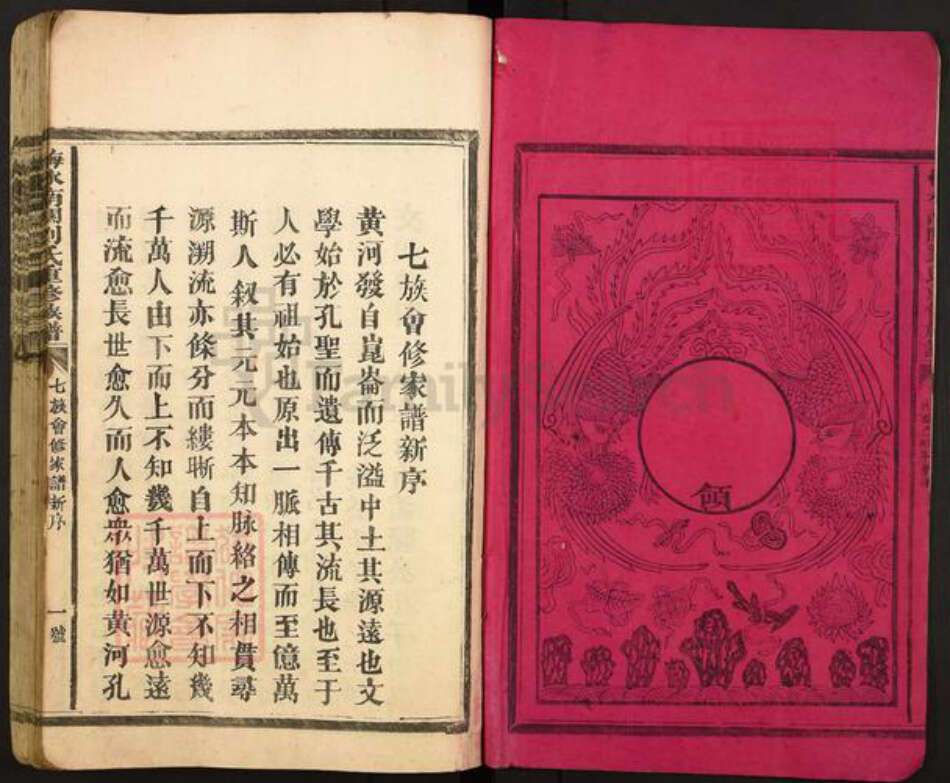 領
七族會修家譜新序
黃河發自崑崙而泛溢中土其源遠也文
學始於孔聖而遺傳千古其流長也至于
人必有祖始也原出一脈相傳而至億萬
斯人敘其元元本本知脉絡之相貫尋
源溯流亦條分而縷晰自上而下不知幾
千萬人由下而上不知幾千萬世源愈遠
而流愈長世愈久而人愈衆猶如黃河孔
劉氏重修族譜
七族會修家譜新序
一號